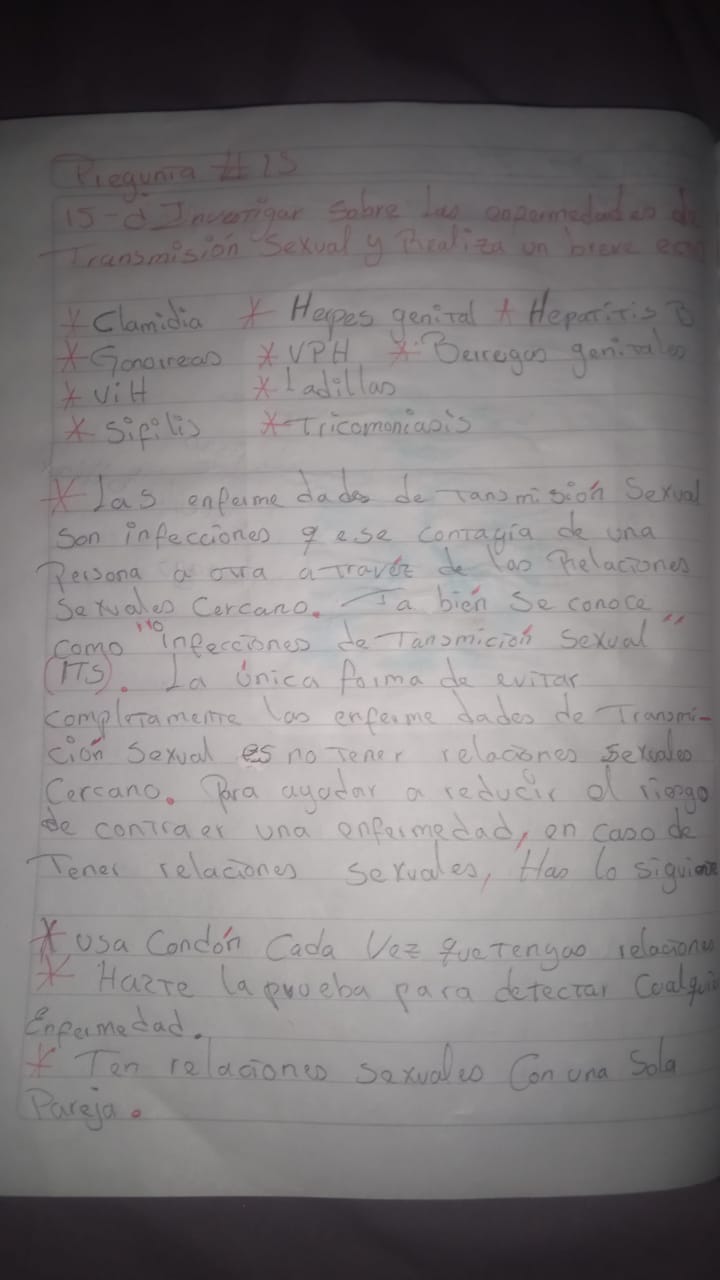 Pregunta #15
15-d Investigar sobre las enfermedades de
Transmisión Sexual y Realiza un breve
* Clamidia * Herpes genital * Hepatitis B
* Gonorreas * VPH * Berregas genitales
* ViH * Ladillas
* Sifilis * Tricomoniasis
* Las enferme dades de Tansmisión Sexual
Son infecciones q ese contagia de una
Persona a otra através de las Relaciones
Sexuales Cercano. Ta bién Se conoce
como "infecciones de Tansmición Sexual"
(ITS). La única forma de evitar
completamente las enferme dades de Transmi-
ción Sexual es no tener relaciones Sexuales
Cercano. Para ayudar a reducir el riesgo
de contraer una enfermedad, en caso de
Tener relaciones Sexuales, Has lo siguiente
* usa Condón Cada Vez que Tengas relaciones
* Hazte la prueba para detectar Cualqui
Enfermedad.
* Ten relaciones Sexuales Con una Sola
Pareja.